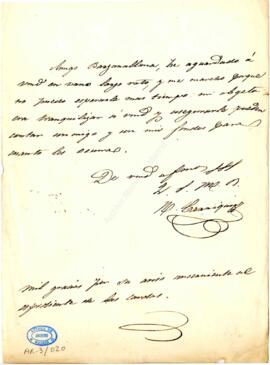 Amigo Barzanallana, he aguardado á
vmd en vano largo rato, y me marcho porque
no puedo esperarle mas tiempo. mi objeto
era tranquilizar á vmd y asegurarle pueden
contar conmigo y con mis fondos para
cuanto les ocurra.
De vmd affmo
Q. S. M. B.
M.
mil gracias por su aviso concerniente al
expediente de las
AR-3/020